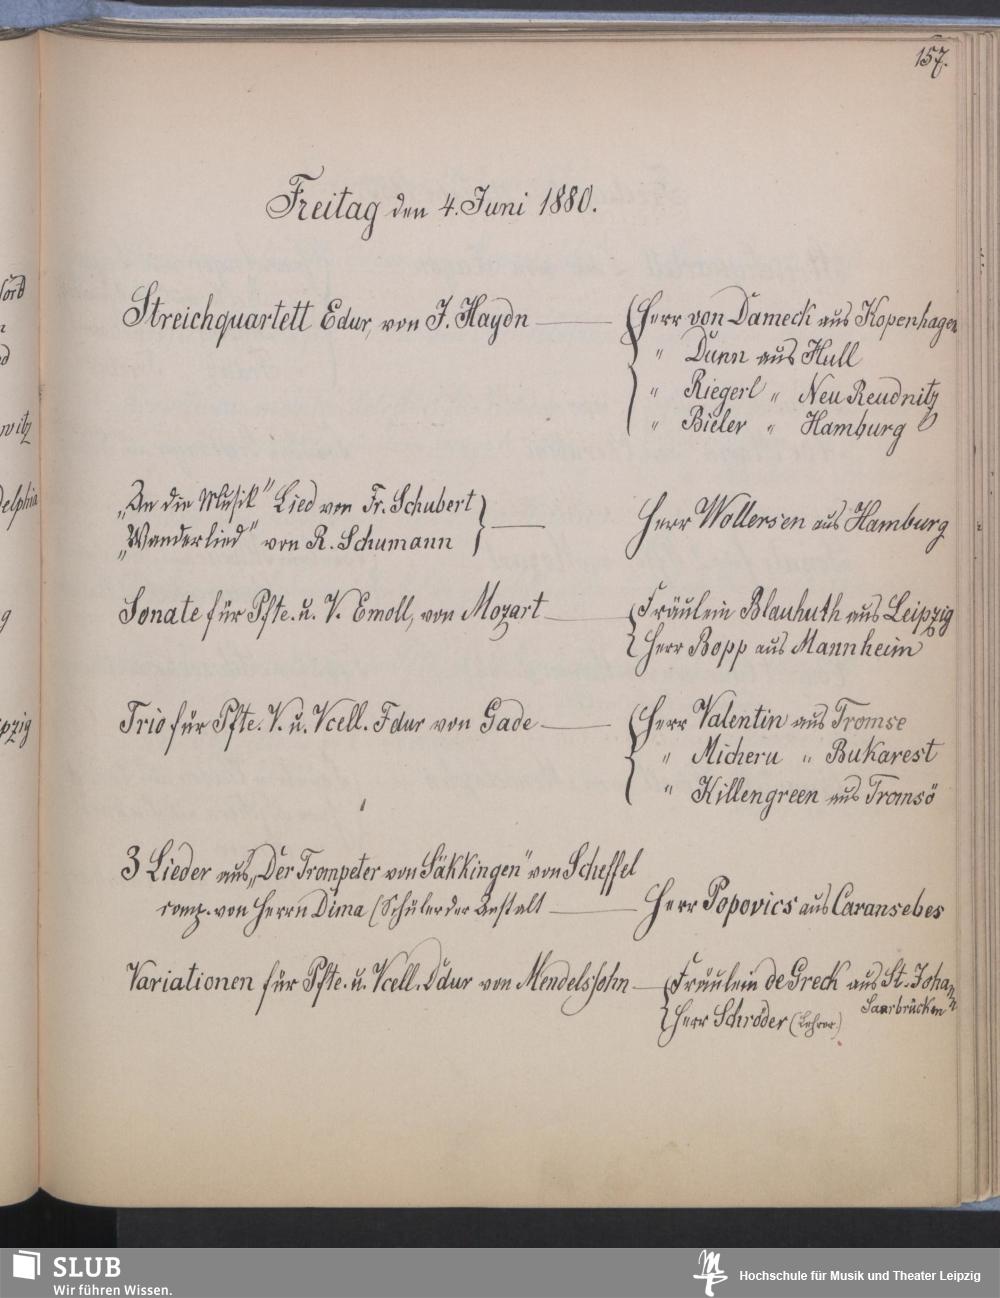 157.
Freitag den 4. Juni 1880.
Streichquartett Edur, von J. Haydn — Herr von Dameck aus Kopenhagen
" Dunn aus Hull
" Riegerl " Neu Reudnitz
" Bieler " Hamburg
„An die Musik" Lied von Fr. Schubert
„Wanderlied" von R. Schumann — Herr Wollersen aus Hamburg
Sonate für Pfte. u. V. Emoll, von Mozart — Fräulein Blauhuth aus Leipzig
Herr Bopp aus Mannheim
Trio für Pfte. V. u. Vcell. Fdur von Gade — Herr Valentin aus Tromse
" Micheru " Bukarest
" Killengreen aus Tromsö
3 Lieder aus „Der Trompeter von Säkkingen" von Scheffel
comp. von Herrn Dima (Schüler der Anstalt — Herr Popovics aus Caransebes
Variationen für Pfte. u. Vcell. Ddur von Mendelssohn — Fräulein de Greck aus St. Johann
Saarbrücken
Herr Schröder (Lehrer.)
witz
delphia
pzig
SLUB
Wir führen Wissen.
Hochschule für Musik und Theater Leipzig